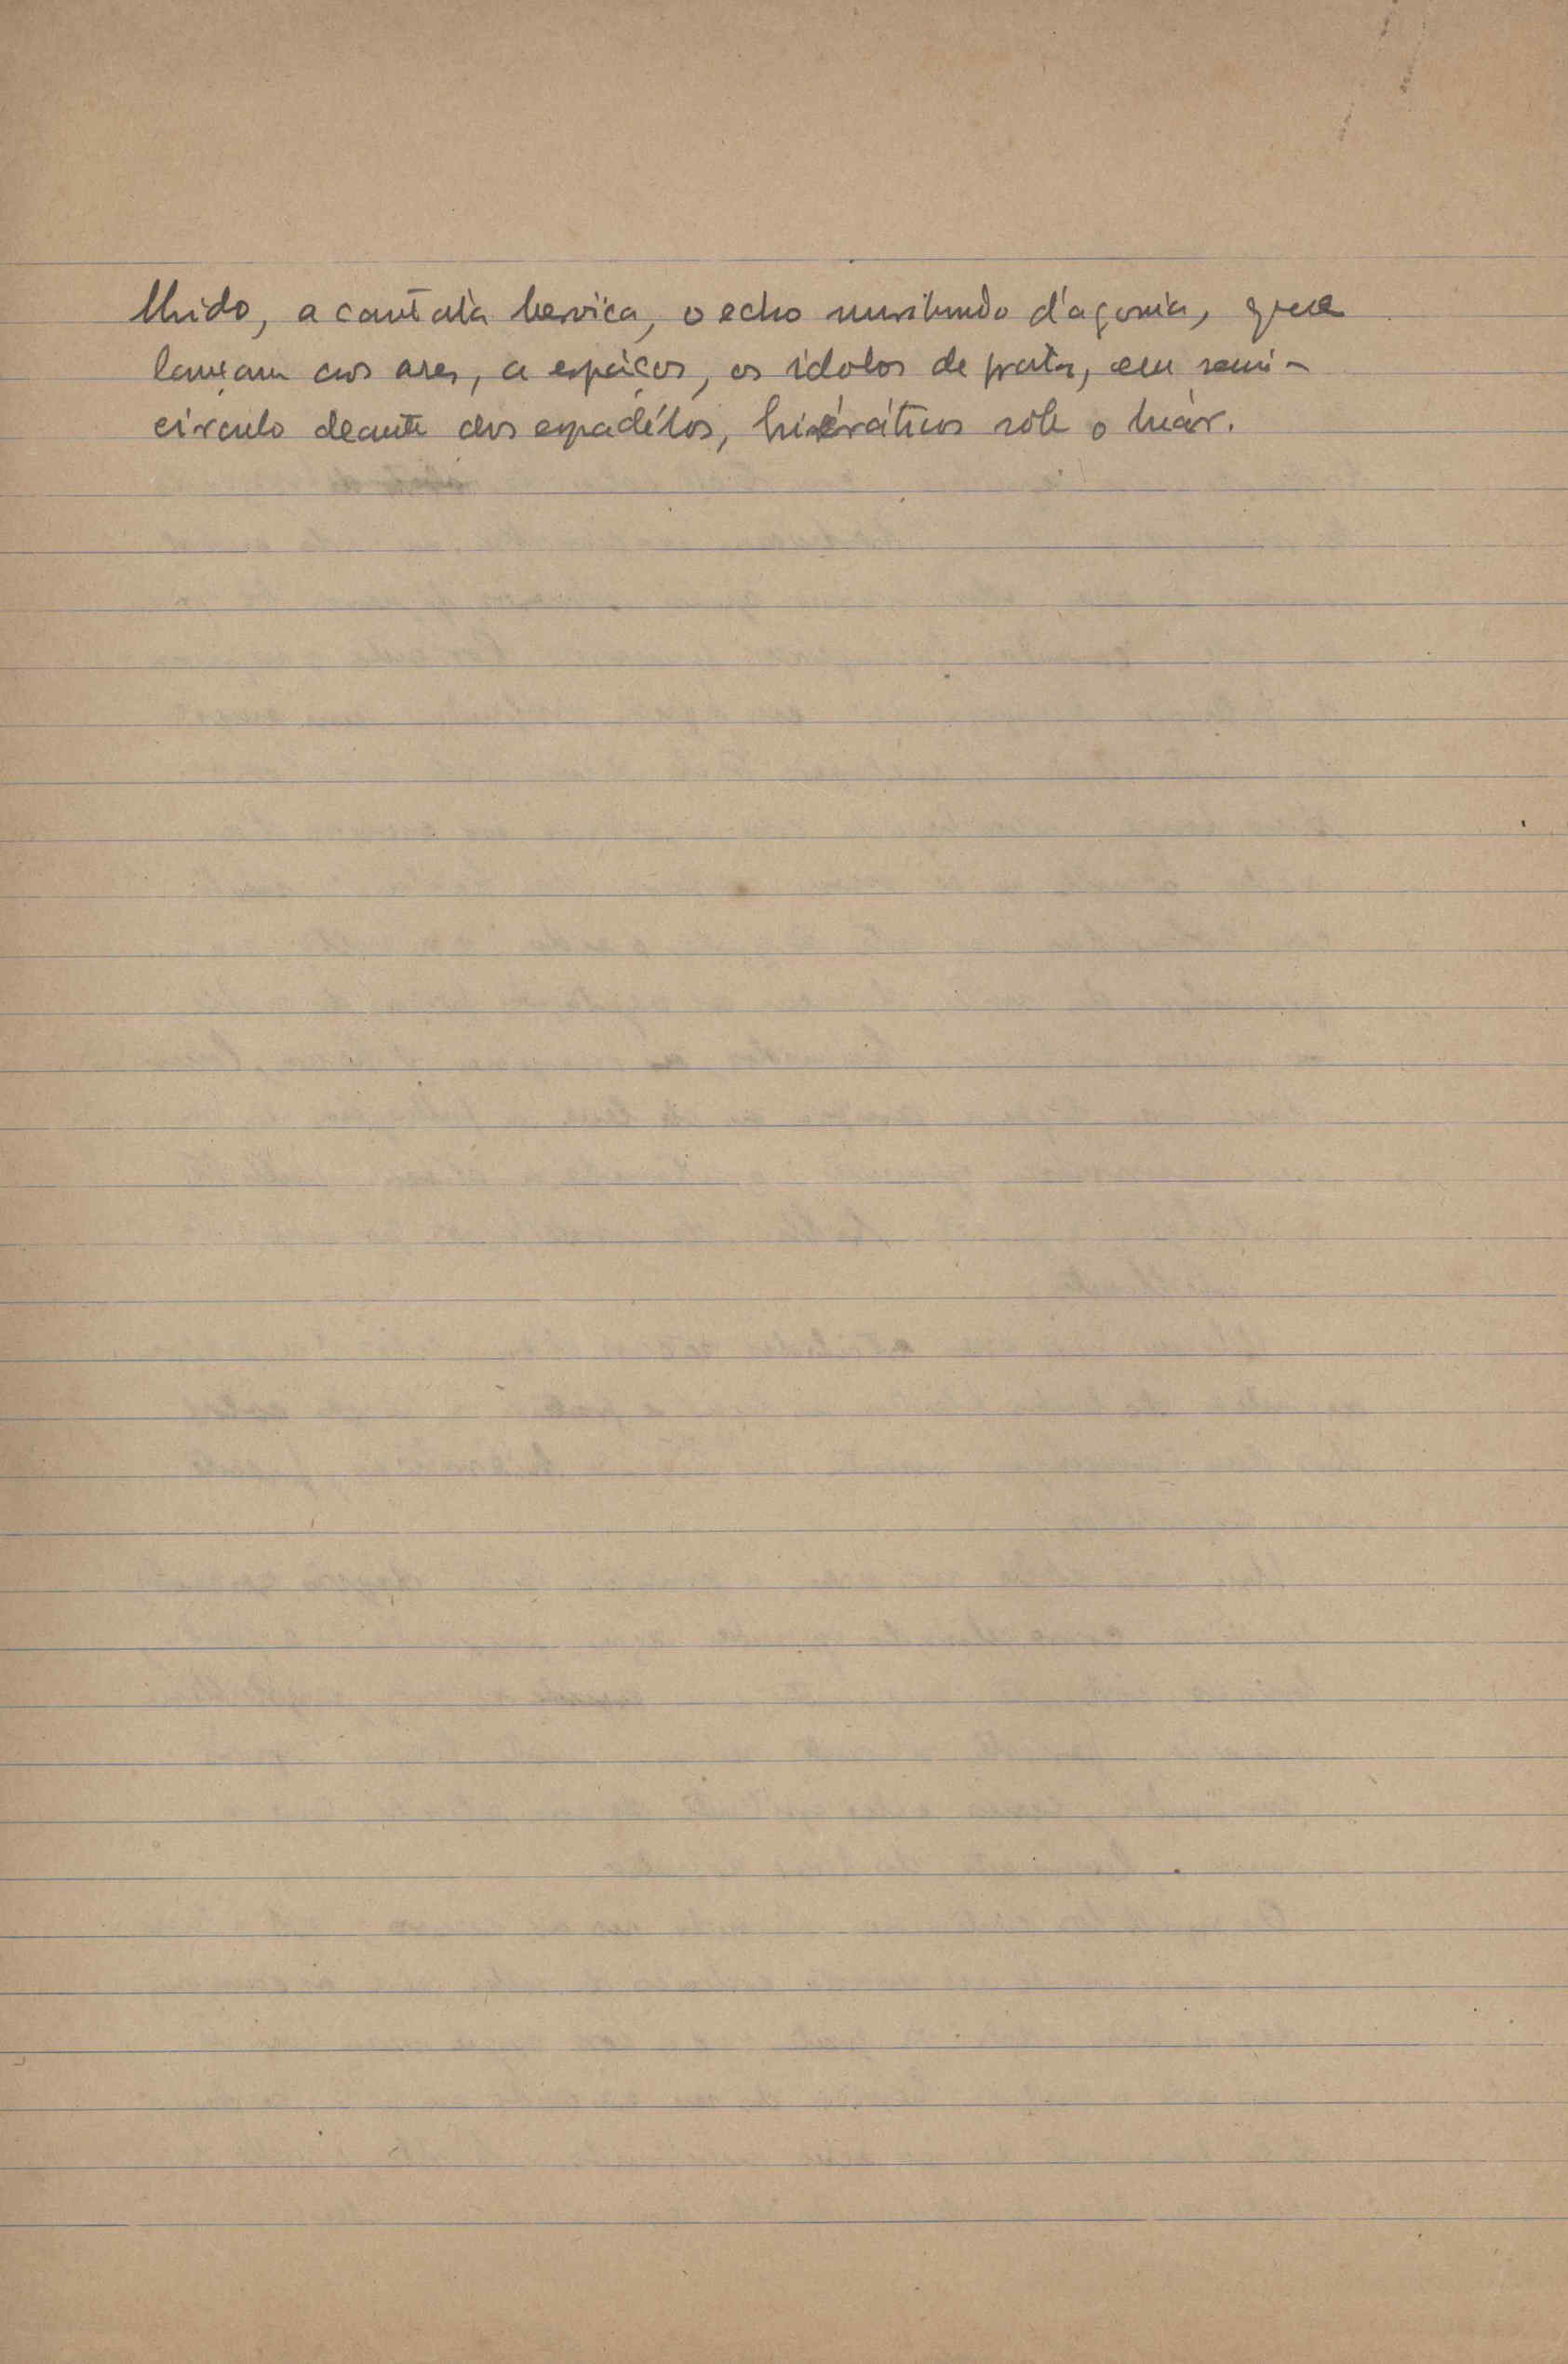 lhido, a cantata heroica, o echo muribundo d'agonia, que
lançam aos ares, a espáços, os idolos de prata, em semi-
circulo deante dos espadélos, hieráticos sob o luár.